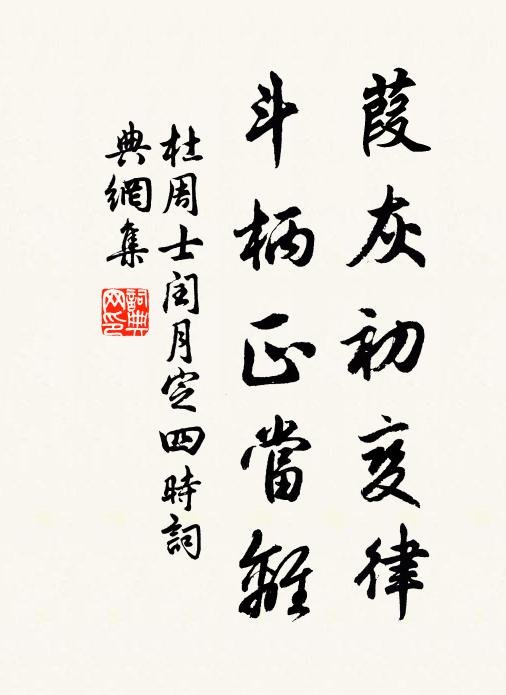 葭灰初变律
斗柄正當離
杜周士闰月定四時詞
典網集
詞典網印